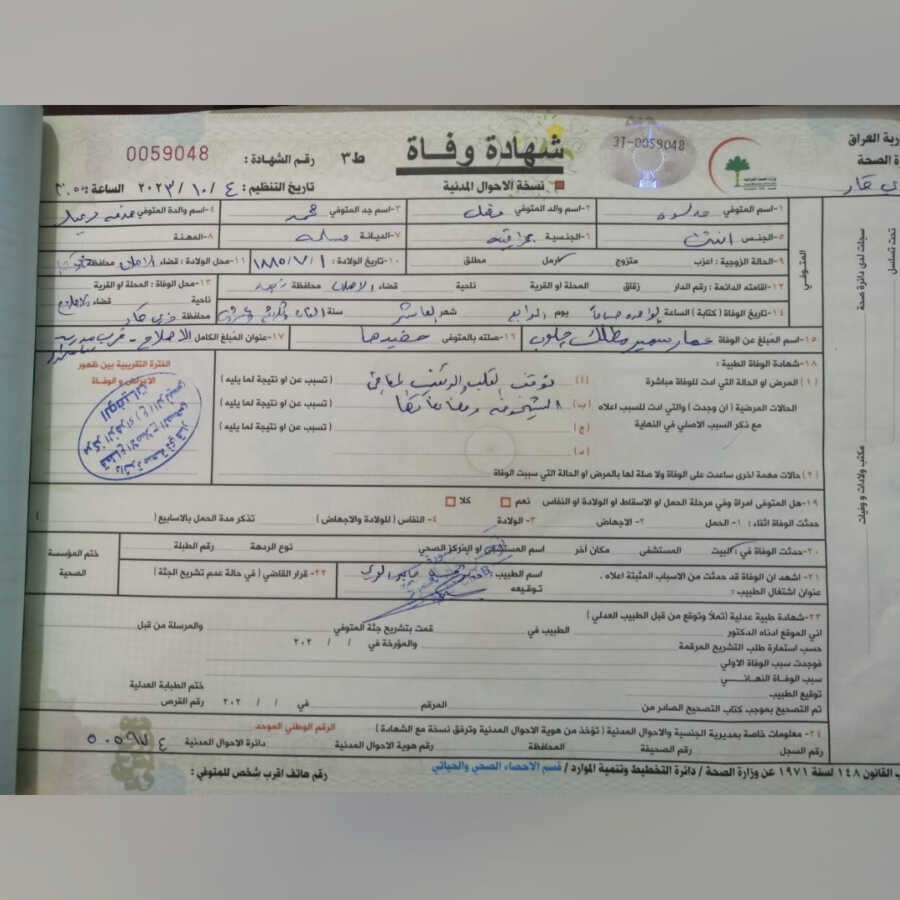 رية العراق
ة الصحة
ي قار
3T-0059048
شهادة وفاة
ط٣
رقم الشهادة :
0059048
نسخة الاحوال المدنية
تاريخ التنظيم : ٤ / ١٠ / ٢٠٢٣ الساعة :
تحت تسلسل
سجلت لدى دائرة صحة
مكتب ولادات و وفيات
المتوفي
١- اسم المتوفي
٢- اسم والد المتوفي
٣- اسم جد المتوفي محمد
٤- اسم والدة المتوفي
٥- الجنس انثى
٦- الجنسية عراقية
٧- الديانة مسلمة
٨- المهنة
٩- الحالة الزوجية : اعزب متزوج ارمل مطلق
١٠- تاريخ الولادة : ١ / ٧ / ١٨٨٥
١١- محل الولادة : قضاء الاصلاح محافظة
١٢- اقامته الدائمة : رقم الدار زقاق المحلة او القرية ناحية قضاء الاصلاح محافظة
١٣- محل الوفاة : المحلة او القرية
ناحية قضاء الاصلاح
محافظة ذي قار
١٤- تاريخ الوفاة ( كتابة ) الساعة الواحدة مساءً يوم الرابع شهر العاشر سنة
١٥- اسم المبلغ عن الوفاة عمار سمير مطلك چلوب
١٦- صلته بالمتوفي حفيدها
١٧- عنوان المبلغ الكامل الاصلاح - قرب مدرسة
١٨- شهادة الوفاة الطبية :
الفترة التقريبية بين ظهور
الاعراض و الوفاة
( ١ ) المرض او الحالة التي ادت للوفاة مباشرة ( أ ) توقف القلب ( تسبب عن او نتيجة لما يليه )
الحالات المرضية ( ان وجدت ) والتي ادت للسبب اعلاه ( ب ) الشيخوخة ومضاعفاتها ( تسبب عن او نتيجة لما يليه )
مع ذكر السبب الاصلي في النهاية ( ج ) ( تسبب عن او نتيجة لما يليه )
( د )
( ٢ ) حالات مهمة اخرى ساعدت على الوفاة ولا صلة لها بالمرض او الحالة التي سببت الوفاة
دائرة صحة ذي قار
قطاع الاصلاح
الوفيات
١٩- هل المتوفى امراة وفي مرحلة الحمل او الاسقاط او الولادة او النفاس نعم كلا
حدثت الوفاة اثناء : ١- الحمل ٢- الاجهاض ٣- الولادة ٤- النفاس ( للولادة والاجهاض ) تذكر مدة الحمل بالاسابيع ( )
٢٠- حدثت الوفاة في : البيت المستشفى مكان آخر اسم المستشفى او المركز الصحي نوع الردهة رقم الطبلة
ختم المؤسسة
الصحية
٢١- اشهد ان الوفاة قد حدثت من الاسباب المثبتة اعلاه . اسم الطبيب :
عنوان اشتغال الطبيب : توقيعه
٢٢- قرار القاضي ( في حالة عدم تشريح الجثة )
٢٣- شهادة طبية عدلية ( تملأ وتوقع من قبل الطبيب العدلي )
اني الموقع ادناه الدكتور الطبيب في قمت بتشريح جثة المتوفي والمرسلة من قبل
حسب استمارة طلب التشريح المرقمة والمؤرخة في / / ٢٠٢
فوجدت سبب الوفاة الاولي
سبب الوفاة النهائي
توقيع الطبيب ختم الطبابة العدلية
تم التصحيح بموجب كتاب التصحيح الصادر من المرقم في / / ٢٠٢ رقم القرص
٢٤- معلومات خاصة بمديرية الجنسية والاحوال المدنية ( تؤخذ من هوية الاحوال المدنية وترفق نسخة مع الشهادة ) الرقم الوطني الموحد
رقم السجل رقم الصحيفة المحافظة رقم هوية الاحوال المدنية دائرة الاحوال المدنية
ب القانون ١٤٨ لسنة ١٩٧١ عن وزارة الصحة / دائرة التخطيط وتنمية الموارد / قسم الاحصاء الصحي والحياتي
رقم هاتف اقرب شخص للمتوفي :